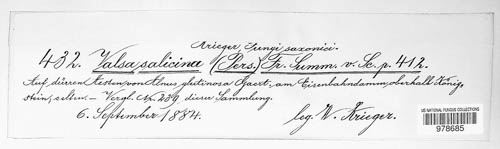 Krieger, Fungi saxonici.
432. Valsa salicina (Pers.) Fr. Summ. v. Sc. p. 412.
Auf dürren Aesten von Alnus glutinosa Gaert., am Eisenbahndamm, oberhalb König-
stein, selten. — Vergl. No. 289 dieser Sammlung.
6. September 1884.
leg. W. Krieger.
US NATIONAL FUNGUS COLLECTIONS
978685